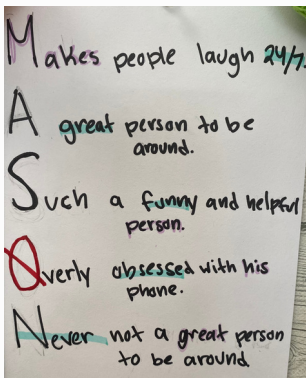 Makes people laugh 24/7.
A great person to be
around.
Such a funny and helpful
person.
Overly obsessed with his
phone.
Never not a great person
to be around